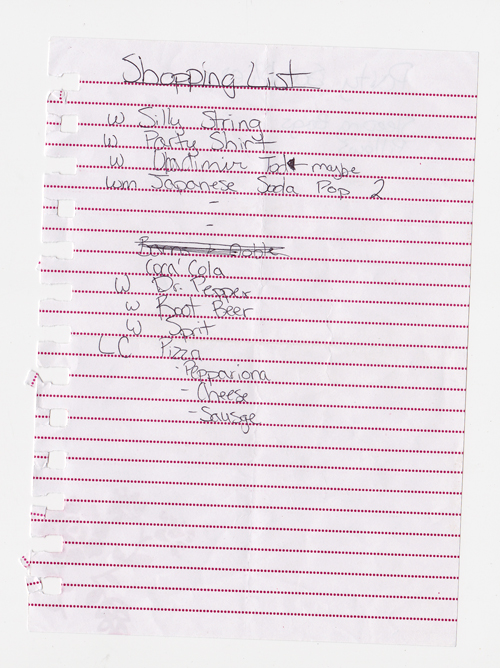 Shopping List
w Silly String
w Party Shirt
w maybe
wm Japanese Soda Pop 2
-
-
Coca Cola
w Dr. Pepper
w Root Beer
w Sprit
LC Pizza
- Peppariona
- Cheese
- Sausge